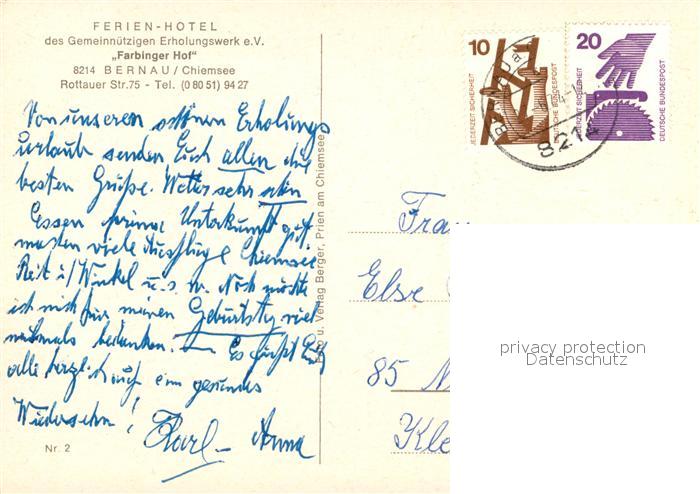 FERIEN-HOTEL
des Gemeinnützigen Erholungswerk e.V.
„Farbinger Hof“
8214 BERNAU/Chiemsee
Rottauer Str.75 - Tel. (0 80 51) 94 27
Von unseren schönen Erholungs
urlaub senden Euch allen die
besten Grüße. Wetter sehr schön
Essen prima Unterkunft gut.
machten viele Ausflüge Chiemsee
Reit i/Winkel u.s.w. Noch möchte
ich mich für meinen Geburtstag
nochmals bedanken. — Es grüßt Euch
alle herzlich auf ein gesundes
Wiedersehn!
Karl - Anna
Nr. 2
Foto u. Verlag Berger, Prien am Chiemsee
10
JEDERZEIT SICHERHEIT
DEUTSCHE BUNDESPOST
20
JEDERZEIT SICHERHEIT
DEUTSCHE BUNDESPOST
8214
Frau
Else
85 N
Kle
privacy protection
Datenschutz